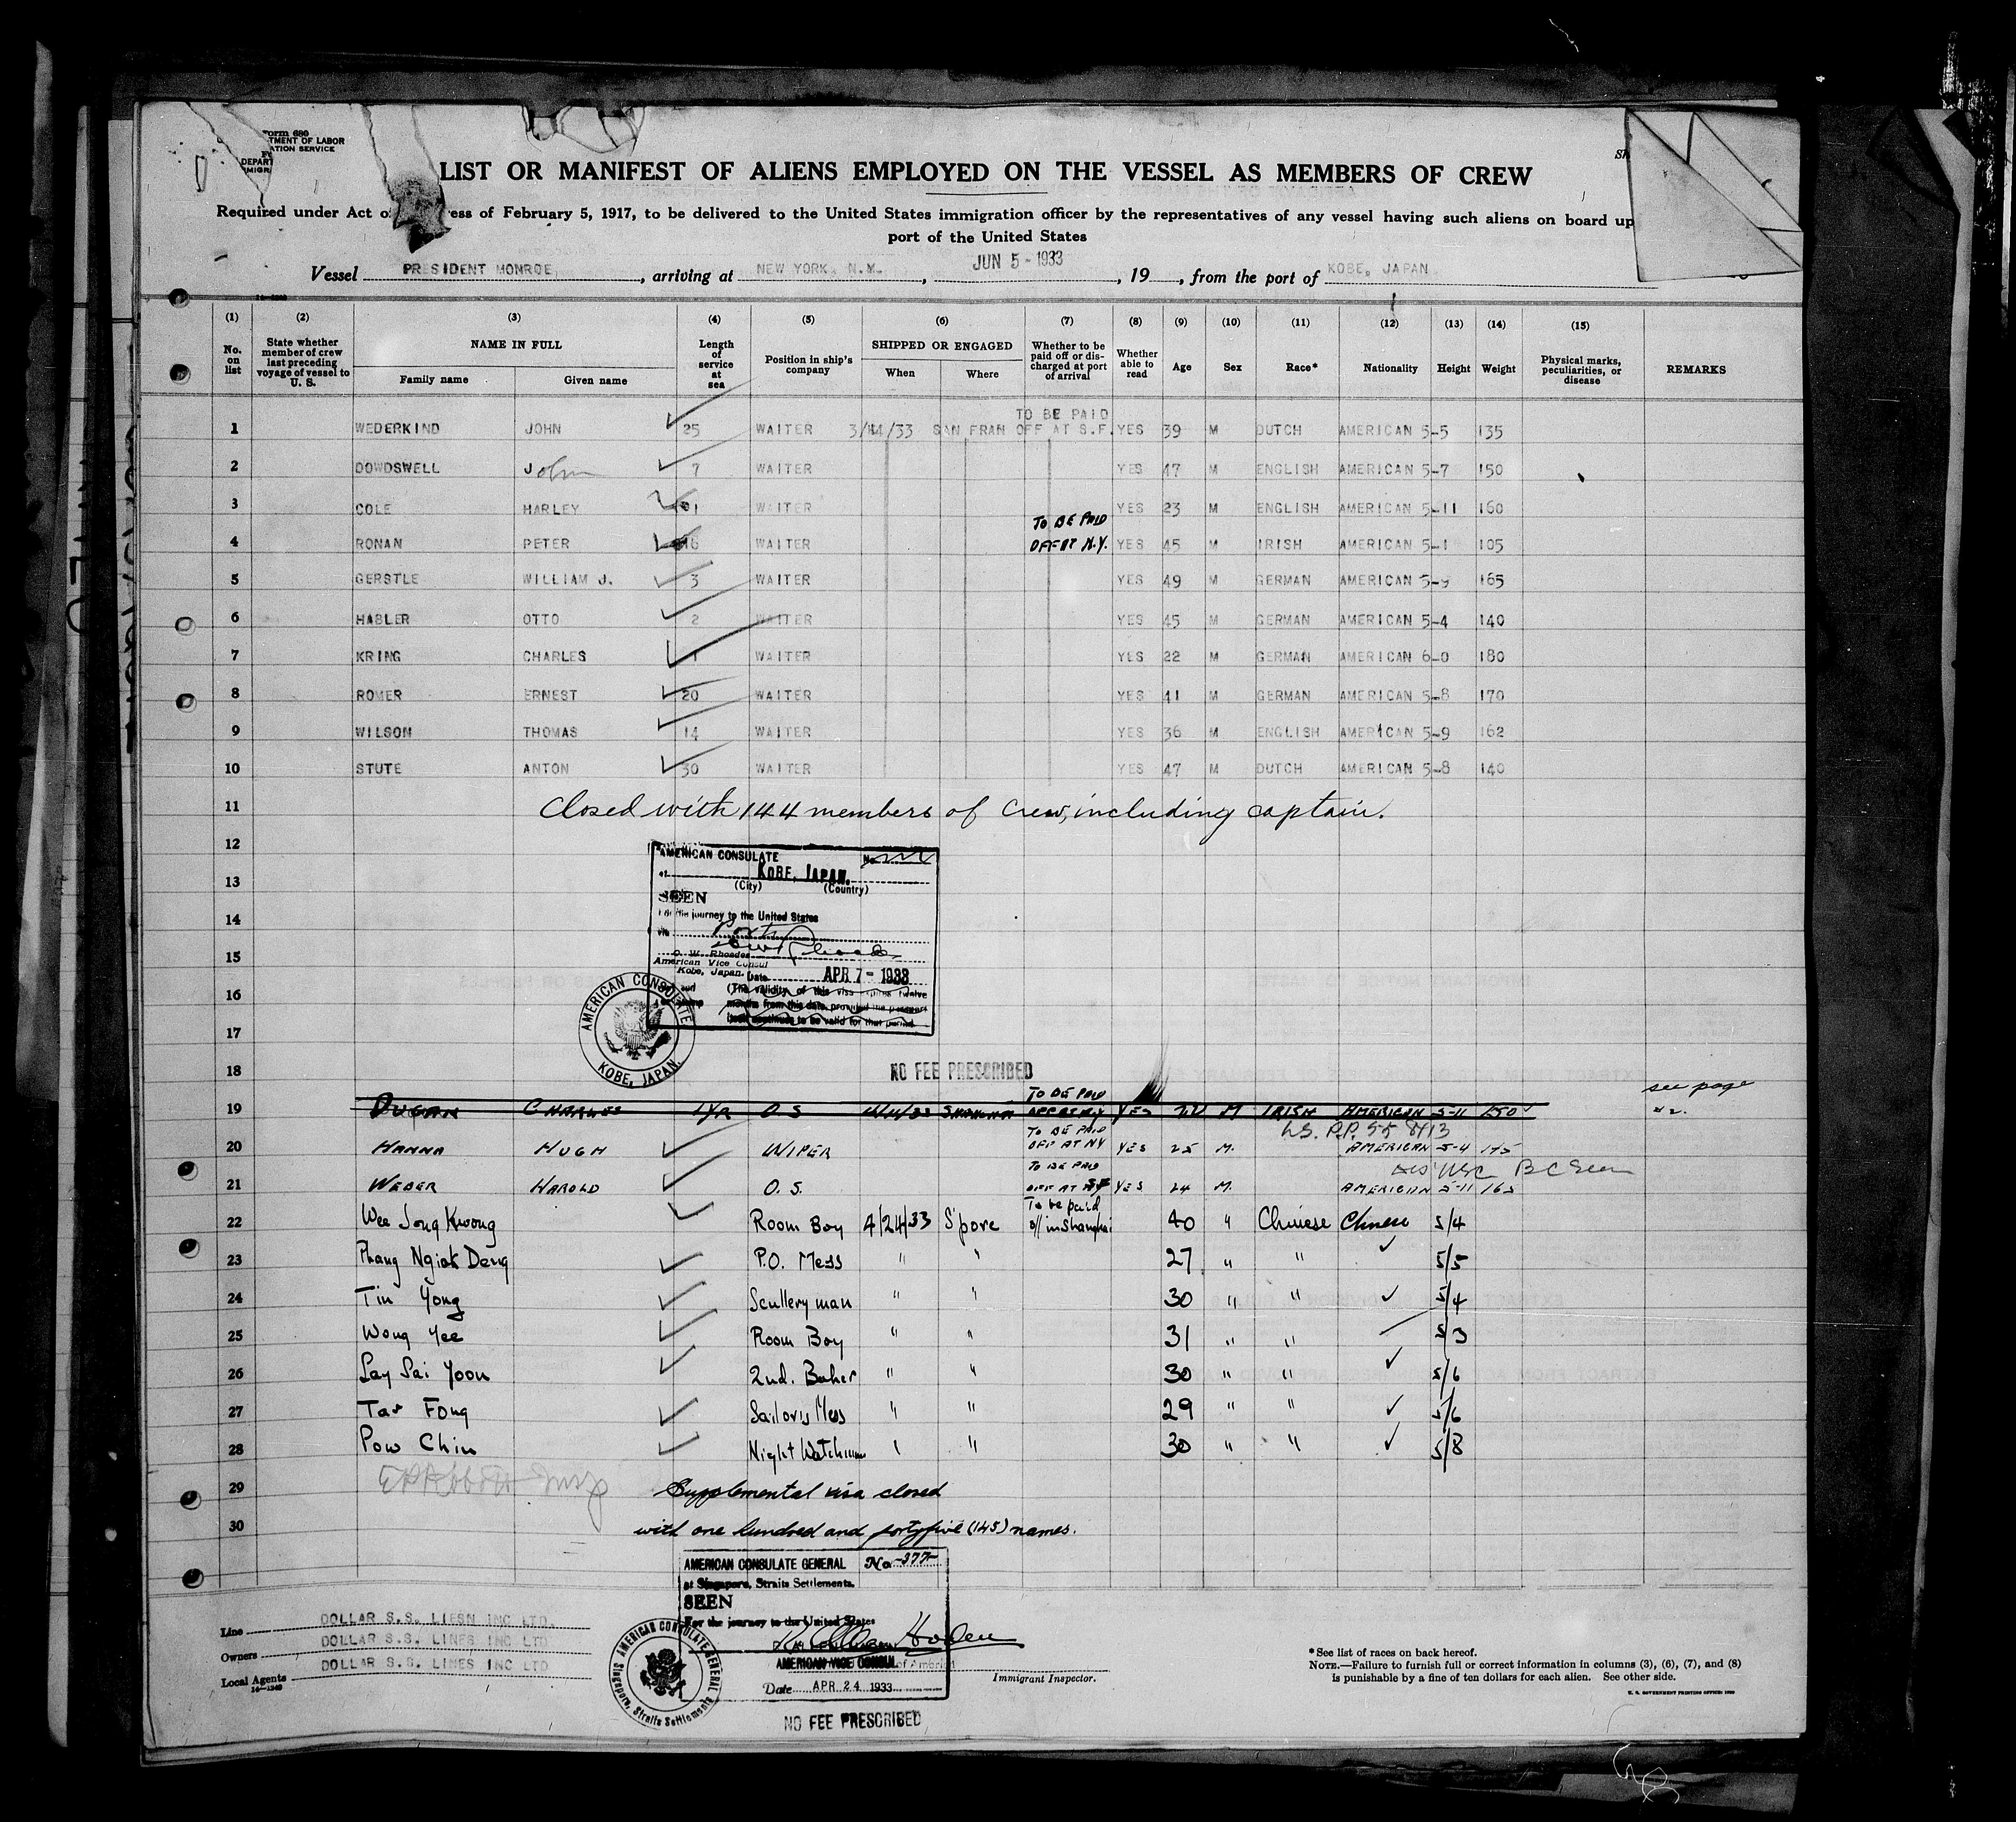 Form 680
TMENT OF LABOR
ATION SERVICE
DEPART
LIST OR MANIFEST OF ALIENS EMPLOYED ON THE VESSEL AS MEMBERS OF CREW
Required under Act of ress of February 5, 1917, to be delivered to the United States immigration officer by the representatives of any vessel having such aliens on board up
port of the United States
Vessel PRESIDENT MONROE, arriving at NEW YORK, N.Y. , JUN 5 - 1933 , 19 , from the port of KOBE, JAPAN
(1) (2) (3) (4) (5) (6) (7) (8) (9) (10) (11) (12) (13) (14) (15)
No. on list State whether member of crew last preceding voyage of vessel to U. S. NAME IN FULL Family name Given name Length of service at sea Position in ship's company SHIPPED OR ENGAGED When Where Whether to be paid off or discharged at port of arrival Whether able to read Age Sex Race* Nationality Height Weight Physical marks, peculiarities, or disease REMARKS
TO BE PAID
1 WEDERKIND JOHN 25 WAITER 3/14/33 SAN FRAN OFF AT S.F. YES 39 M DUTCH AMERICAN 5-5 135
2 DOWDSWELL John 7 WAITER YES 47 M ENGLISH AMERICAN 5-7 150
3 COLE HARLEY 1 WAITER YES 23 M ENGLISH AMERICAN 5-11 160
TO BE PAID
4 RONAN PETER 16 WAITER OFF AT N.Y. YES 45 M IRISH AMERICAN 5-1 105
5 GERSTLE WILLIAM J. 3 WAITER YES 49 M GERMAN AMERICAN 5-9 165
6 HABLER OTTO 2 WAITER YES 45 M GERMAN AMERICAN 5-4 140
7 KRING CHARLES 1 WAITER YES 22 M GERMAN AMERICAN 6-0 180
8 ROMER ERNEST 20 WAITER YES 41 M GERMAN AMERICAN 5-8 170
9 WILSON THOMAS 14 WAITER YES 36 M ENGLISH AMERICAN 5-9 162
10 STUTE ANTON 30 WAITER YES 47 M DUTCH AMERICAN 5-8 140
11 Closed with 144 members of crew, including captain.
12
AMERICAN CONSULATE No.
at KOBE, JAPAN.
13 (City) (Country)
SEEN
14 For the journey to the United States
via
15 O. W. Rhoades
American Vice Consul
Kobe, Japan. Date APR 7 - 1933
16 (The validity of this visa expires twelve
months from this date, provided the passport
continues to be valid for that period.
AMERICAN CONSULATE KOBE, JAPAN.
17
18 NO FEE PRESCRIBED
TO BE PAID see page
19 DUGAN CHARLES 1 YR O S OFF AT NY YES M IRISH AMERICAN 5-11 150 #2.
TO BE PAID U.S. P.P. 55 8413
20 HANNA HUGH WIPER OFF AT NY YES 25 M. AMERICAN 5-4 145
TO BE PAID B C Seen
21 WEBER HAROLD O. S. OFF AT YES 24 M. AMERICAN 5-11 165
To be paid
22 Wee Jong Kwong Room Boy 4/24/33 S'pore off in Shanghai 40 " Chinese Chinese 5/4
23 Phang Ngiak Deng P.O. Mess " " 27 " " 5/5
24 Tin Yong Scullery man " " 30 " " 5/4
25 Wong Yee Room Boy " " 31 " " 5/3
26 Lay Sai Yoon 2nd. Baker " " 30 " " 5/6
27 Tar Fong Sailors Mess " " 29 " " 5/6
28 Pow Chin Night Watchman " " 30 " " 5/8
29 Supplemental visa closed
30 with one hundred and fortyfive (145) names.
AMERICAN CONSULATE GENERAL No -377-
at Singapore, Straits Settlements.
SEEN
For the journey to the United States
AMERICAN VICE CONSUL
Date APR 24 1933
AMERICAN CONSULATE GENERAL Singapore, Straits Settlements
NO FEE PRESCRIBED
Line DOLLAR S.S. LIESN INC LTD.
Owners DOLLAR S.S. LINES INC LTD
Local Agents DOLLAR S.S. LINES INC LTD
14—1240
Immigrant Inspector.
*See list of races on back hereof.
NOTE.—Failure to furnish full or correct information in columns (3), (6), (7), and (8)
is punishable by a fine of ten dollars for each alien. See other side.